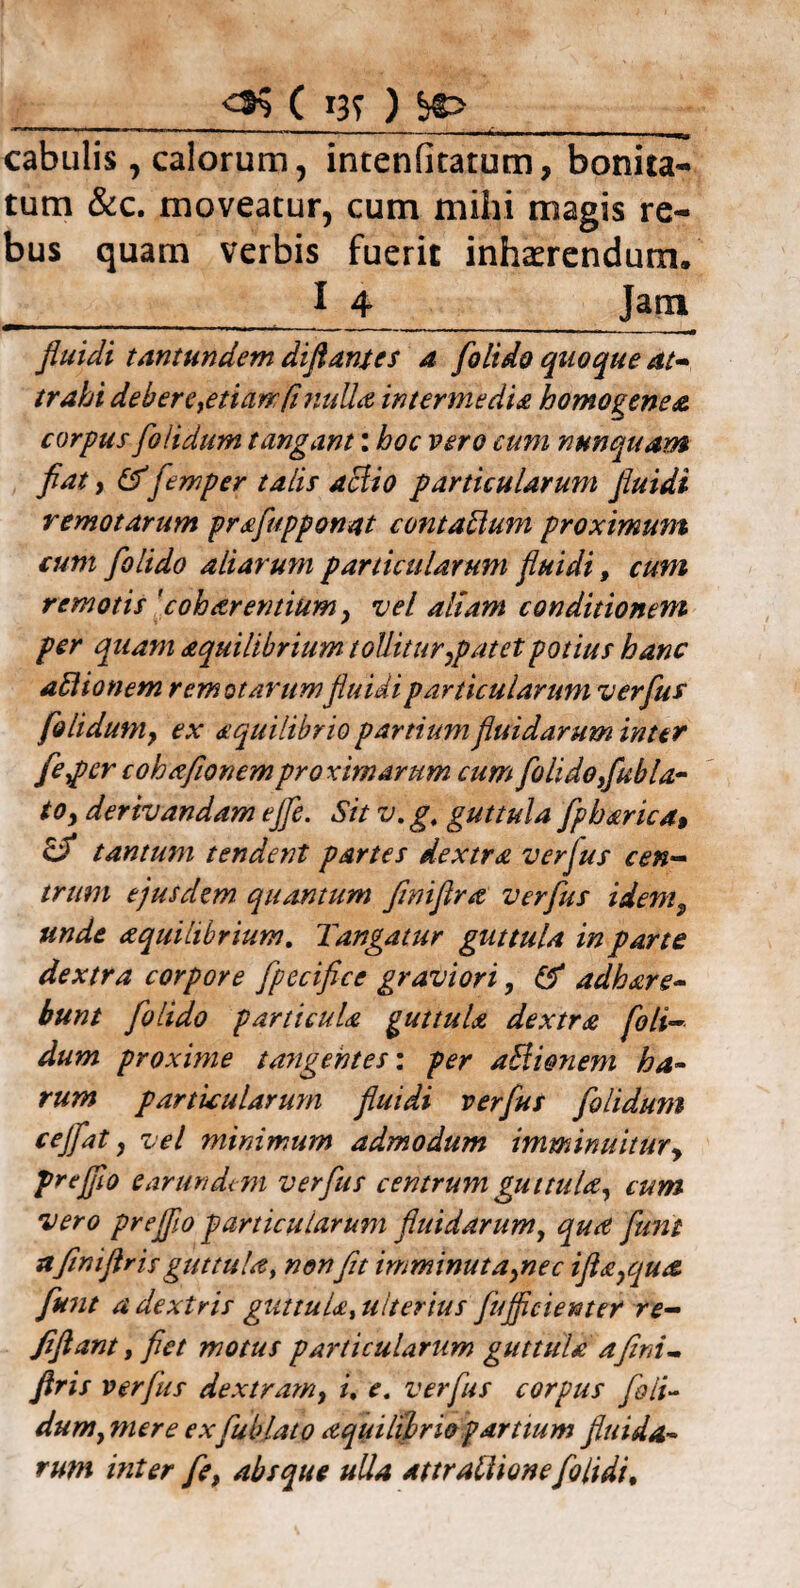 ( 135 )
cabulis, calorum, intenſitatum, bonita-
tum &c. moveatur, cum mihi magis re-
bus quam verbis fuerit inhærendum.
I 4 Jam
fluidi tantundem diſtantes a ſolido quoque at-
trahi debere, etiamſi nullæ intermediæ homogeneæ
corpus ſolidum tangant: hoc vero cum nunquam
fiat, & ſemper talis actio particularum fluidi
remotarum præſupponat contactum proximum
cum ſolido aliarum particularum fluidi, cum
remotis cohærentium, vel aliam conditionem
per quam æquilibrium tollitur, patet potius hanc
actionem remotarum fluidi particularum verſus
ſolidum, ex æquilibrio partium fluidarum inter
ſe, per cohæſionem proximarum cum ſolido, ſubla-
to, derivandam eſſe. Sit v. g. guttula ſphærica,
& tantum tendent partes dextræ verſus cen-
trum ejusdem quantum ſiniſtræ verſus idem,
unde æquilibrium. Tangatur guttula in parte
dextra corpore ſpecifice graviori, & adhære-
bunt ſolido particulæ guttulæ dextræ ſoli-
dum proxime tangentes: per actionem ha-
rum particularum fluidi verſus ſolidum
ceſſat, vel minimum admodum imminuitur,
preſſio earundem verſus centrum guttulæ, cum
vero preſſio particularum fluidarum, quæ ſunt
a ſiniſtris guttulæ, non ſit imminuta, nec iſtæ, quæ
ſunt a dextris guttulæ, ulterius ſufficienter re-
ſiſtant, fiet motus particularum guttulæ a ſini-
ſtris verſus dextram, i. e. verſus corpus ſoli-
dum, mere ex ſublato æquilibrio partium fluida-
rum inter ſe, absque ulla attractione ſolidi.